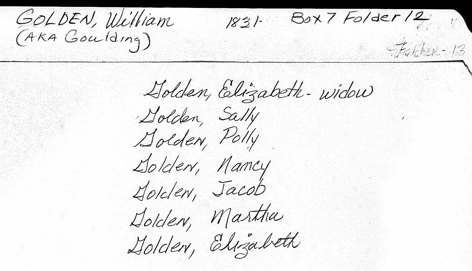 GOLDEN, William 1831- Box 7 Folder 12
(AKA Goulding)
13
Golden, Elizabeth - widow
Golden, Sally
Golden, Polly
Golden, Nancy
Golden, Jacob
Golden, Martha
Golden, Elizabeth